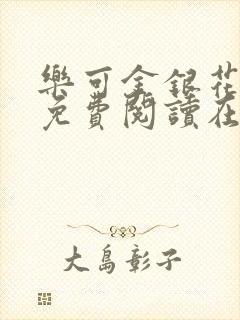 樂可金銀花
免費閱讀在
大島彰子